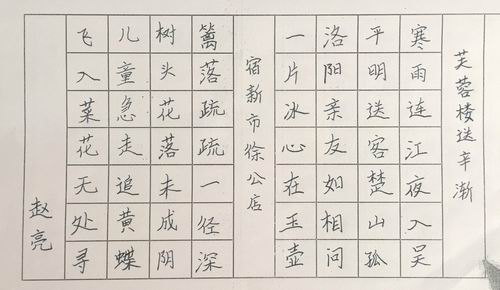 芙蓉楼送辛渐
寒雨连江夜入吴
平明送客楚山孤
洛阳亲友如相问
一片冰心在玉壶
宿新市徐公店
篱落疏疏一径深
树头花落未成阴
儿童急走追黄蝶
飞入菜花无处寻
赵亮